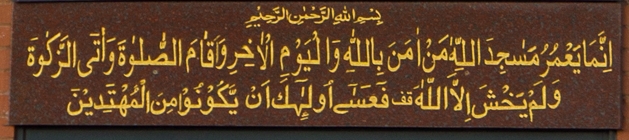 بِسْمِ اللهِ الرَّحْمٰنِ الرَّحِيْمِ
اِنَّمَا يَعْمُرُ مَسٰجِدَ اللّٰهِ مَنْ اٰمَنَ بِاللّٰهِ وَالْيَوْمِ الْاٰخِرِ وَاَقَامَ الصَّلٰوةَ وَاٰتَى الزَّكٰوةَ
وَلَمْ يَخْشَ اِلَّا اللّٰهَ قف فَعَسٰٓى اُولٰٓئِكَ اَنْ يَّكُوْنُوْا مِنَ الْمُهْتَدِيْنَ